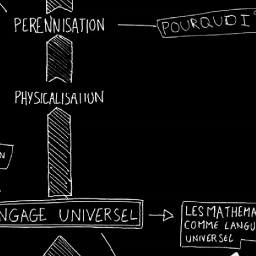 PERENNISATION
POURQUOI
PHYSICALISATION
N
NGAGE UNIVERSEL
LES MATHEMA
COMME LANGU
UNIVERSEL